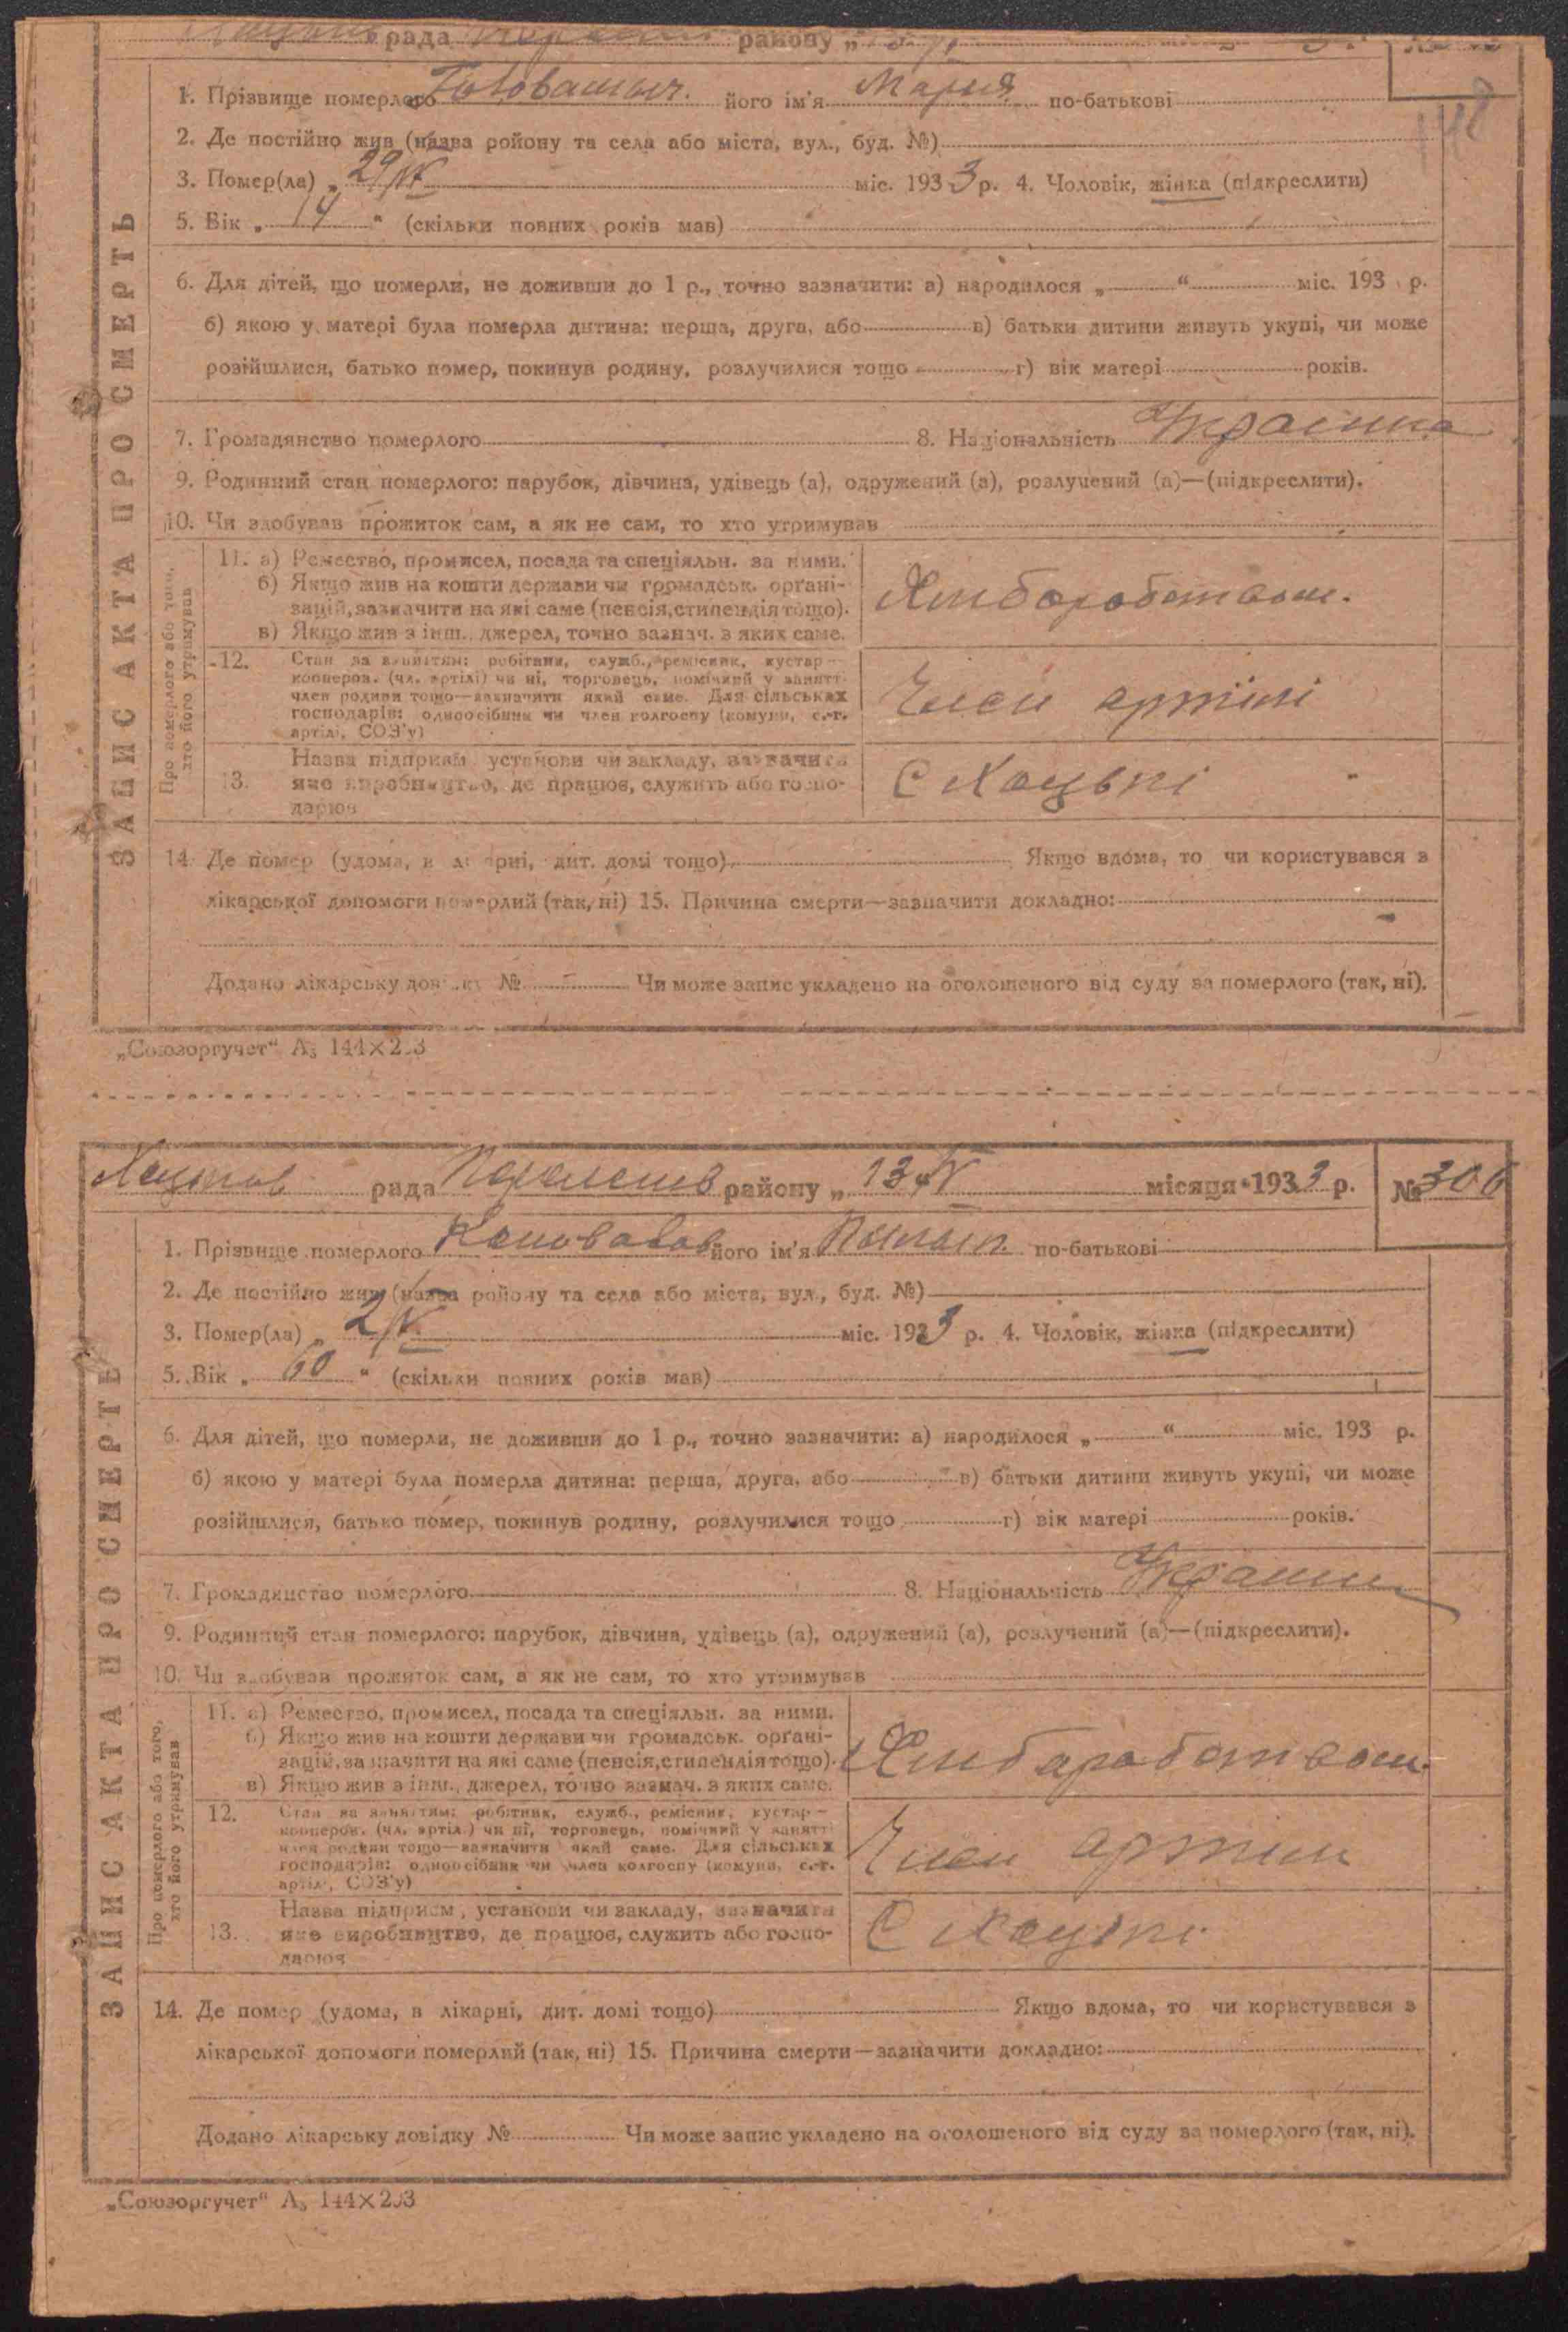 рада району „
148
1. Прізвище померлого Головашыч. його ім'я Мария по-батькові
2. Де постійно жив (назва ройону та села або міста, вул., буд. №)
3. Помер(ла) „ 29/IV міс. 1933 р. 4. Чоловік, жінка (підкреслити)
5. Вік „ 14 “ (скільки повних років мав)
6. Для дітей, що померли, не доживши до 1 р., точно зазначити: а) народилося „ “ міс. 193 р.
б) якою у матері була померла дитина: перша, друга, або в) батьки дитини живуть укупі, чи може
розійшлися, батько помер, покинув родину, розлучилися тощо г) вік матері років.
7. Громадянство померлого 8. Національність Украинка
9. Родинний стан померлого: парубок, дівчина, удівець (а), одружений (а), розлучений (а)—(підкреслити).
10. Чи здобував прожиток сам, а як не сам, то хто утримував
ЗАПИС АКТА ПРО СМЕРТЬ
Про померлого або того, хто його утримував
11. а) Ремество, промисел, посада та спеціяльн. за ними.
б) Якщо жив на кошти держави чи громадськ. орґані-
зацій, зазначити на які саме (пенсія, стипендія тощо).
в) Якщо жив з інш. джерел, точно зазнач. з яких саме.
Хлиборобством.
12. Стан за заняттям: робітник, служб., ремісник, кустар—
кооперов. (чл. артілі) чи ні, торговець, помічний у занятт.
член родини тощо—зазначити який саме. Для сільських
господарів: одноосібник чи член колгоспу (комуни, с.-г.
артілі, СОЗ'у)
Член артілі
13. Назва підприєм. установи чи закладу, зазначити
яке виробництво, де працює, служить або госпо-
дарює
С Хоцькі
14. Де помер (удома, в лікарні, дит. домі тощо) Якщо вдома, то чи користувався з
лікарської допомоги померлий (так, ні) 15. Причина смерти—зазначити докладно:
Додано лікарську довідку № Чи може запис укладено на оголошеного від суду за померлого (так, ні).
„Союзоргучет“ А₅ 144×203
рада району „ 13/IV місяця 1933 р. № 306
1. Прізвище померлого Коновалов його ім'я по-батькові
2. Де постійно жив (назва ройону та села або міста, вул., буд. №)
3. Помер(ла) „ 2/V міс. 1933 р. 4. Чоловік, жінка (підкреслити)
5. Вік „ 60 “ (скільки повних років мав)
6. Для дітей, що померли, не доживши до 1 р., точно зазначити: а) народилося „ “ міс. 193 р.
б) якою у матері була померла дитина: перша, друга, або в) батьки дитини живуть укупі, чи може
розійшлися, батько помер, покинув родину, розлучилися тощо г) вік матері років.
7. Громадянство померлого 8. Національність
9. Родинний стан померлого: парубок, дівчина, удівець (а), одружений (а), розлучений (а)—(підкреслити).
10. Чи здобував прожиток сам, а як не сам, то хто утримував
ЗАПИС АКТА ПРО СМЕРТЬ
Про померлого або того, хто його утримував
11. а) Ремество, промисел, посада та спеціяльн. за ними.
б) Якщо жив на кошти держави чи громадськ. орґані-
зацій, зазначити на які саме (пенсія, стипендія тощо).
в) Якщо жив з інш. джерел, точно зазнач. з яких саме.
Хлибаработвом.
12. Стан за заняттям: робітник, служб., ремісник, кустар—
кооперов. (чл. артіл.) чи ні, торговець, помічний у занятті
член родини тощо—зазначити який саме. Для сільських
господарів: одноосібник чи член колгоспу (комуни, с.-г.
артілі, СОЗ'у)
Член артили
13. Назва підприєм., установи чи закладу, зазначити
яке виробництво, де працює, служить або госпо-
дарює
С Хоцькі
14. Де помер (удома, в лікарні, дит. домі тощо) Якщо вдома, то чи користувався з
лікарської допомоги померлий (так, ні) 15. Причина смерти—зазначити докладно:
Додано лікарську довідку № Чи може запис укладено на оголошеного від суду за померлого (так, ні).
„Союзоргучет“ А₅ 144×203